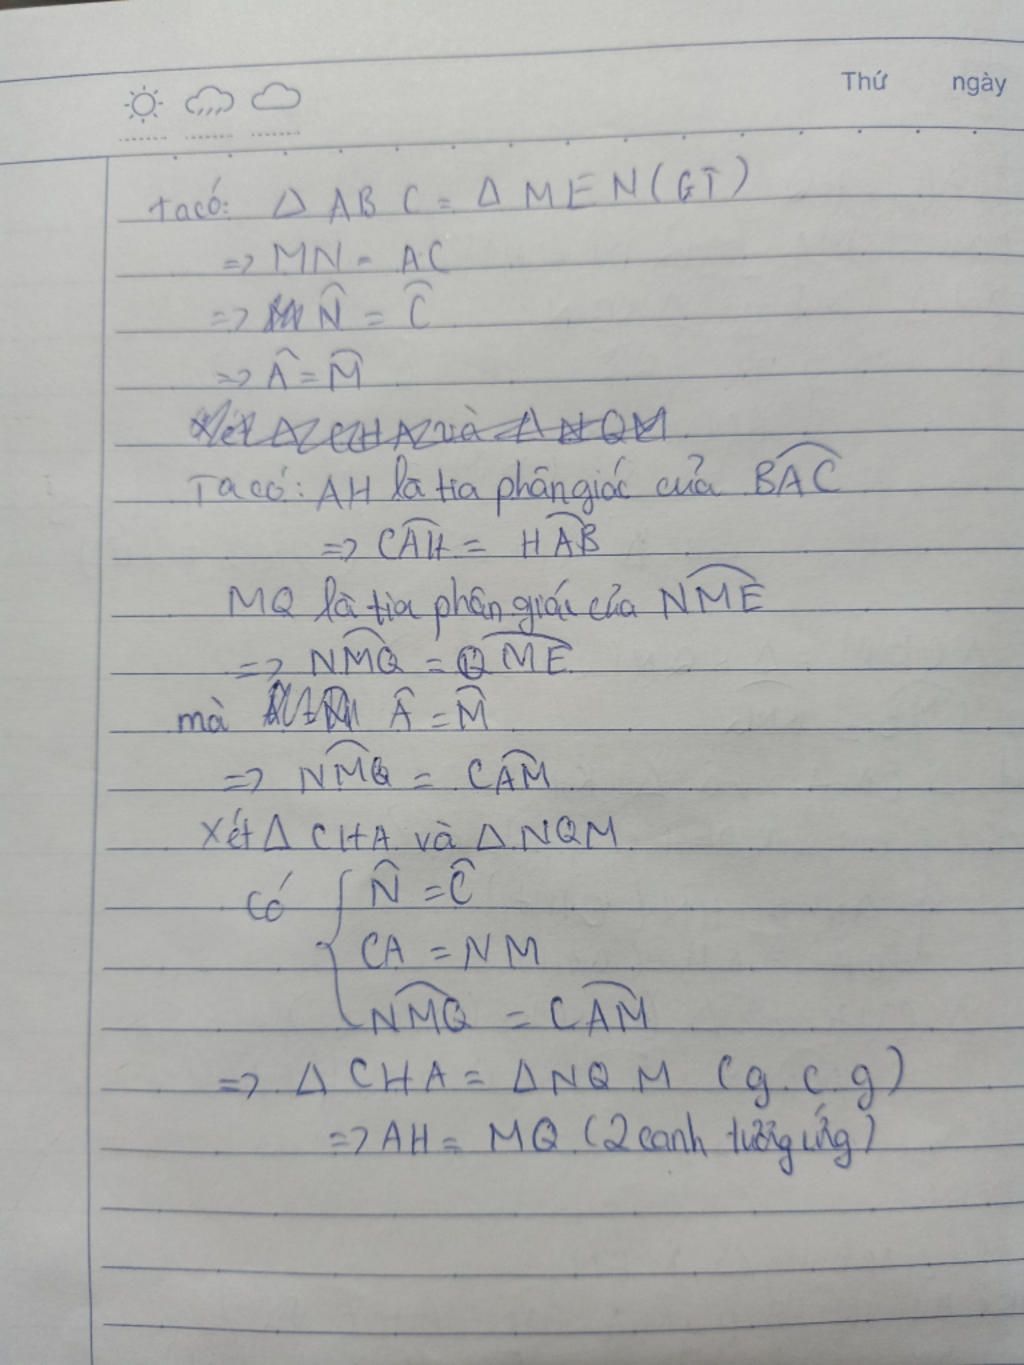 Thứ ngày
Ta có: Δ ABC = Δ MEN (GT)
=> MN = AC
=> N̂ = Ĉ
=> Â = M̂
Xét Δ CHA và Δ NQM
Ta có: AH là tia phân giác của BAC
=> CAH = HAB
MQ là tia phân giác của NME
=> NMQ = QME
mà Â = M̂
=> NMQ = CAM
Xét Δ CHA và Δ NQM
Có { N̂ = Ĉ
CA = NM
NMQ = CAM
=> Δ CHA = Δ NQM (g.c.g)
=> AH = MQ (2 canh tương ứng)